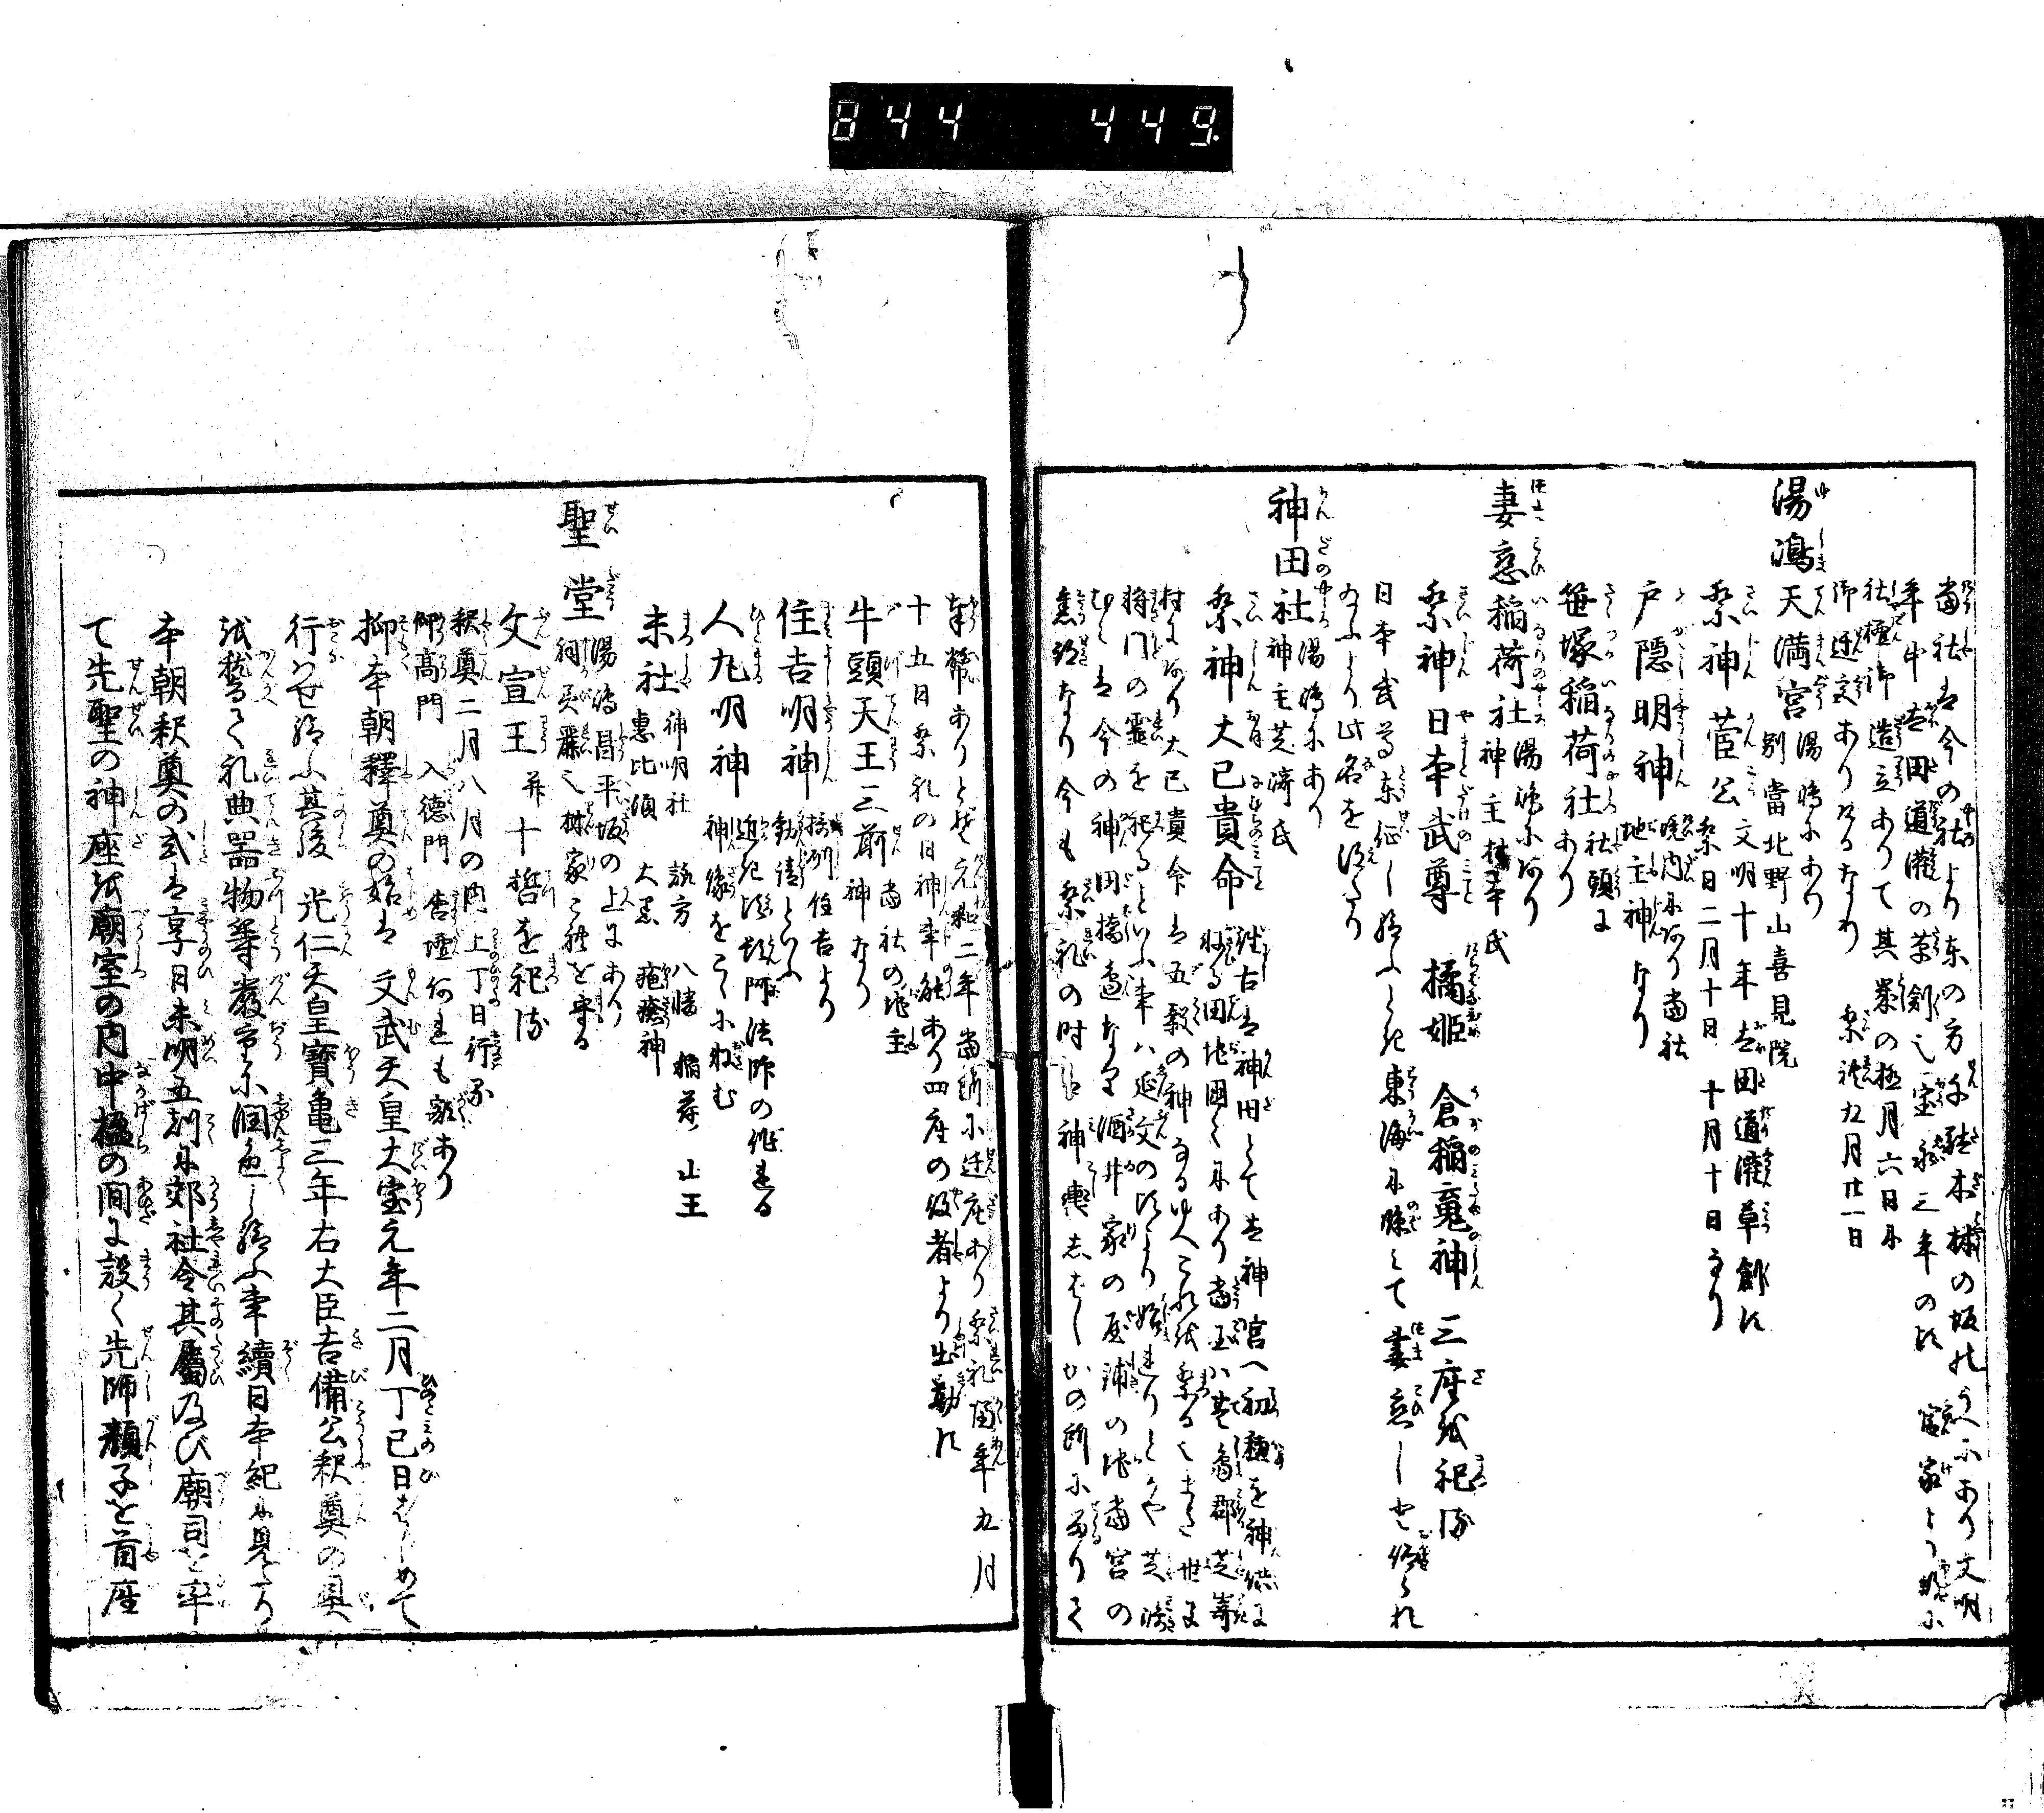 844 449
當社は今の社より東の方千駄木林の坂のうへにあり文明
年中太田道灌の草創也宝永三年の比 當家より
社壇御造立ありて其業の極月六日に
御迁宮ありけるなり 祭禮九月廿一日
湯嶋天満宮 湯嶋にあり 別當北野山喜見院
祭神 菅公 文明十年太田道灌草創す 祭日二月十日 十月十日なり
戸隠明神 境内にあり當社 地主神なり
笹塚稲荷社 社頭に あり
妻恋稲荷社 湯嶋にあり 神主 氏
祭神 日本武尊 橘姫 倉稲魂神 三座を祀る
日本武尊東征し給ふとき東海に臨みて妻恋し
給ふより此名を得たり
神田社 湯嶋にあり 神主芝崎氏
祭神 大己貴命 往古は神田とて太神宮へ初穂を神供に
村にあり大己貴命は五穀の神なるゆへこれを祭る
将門の霊を祀るといふ事ハ延文の比より始れりとかや芝崎
むらは今の神田橋邉なり酒井家の屋舗の地當宮の
旧跡なり今も祭礼の時は神輿しばしかの所に
奉幣ありとぞ元和二年當所に迁座あり祭礼隔年九月
十五日祭礼の日神事能あり四座の役者より出勤す
牛頭天王三前 當社の地主 神なり
住吉明神 摂州住吉より 勧請といふ
人丸明神 頓阿法師の作れる 神像をこゝにおさむ
末社 神明社 諏方 八幡 稲荷 山王 恵比須 大黒 疱瘡神
聖堂 湯嶋昌平坂の上にあり 林家これを守る
文宣王 并十哲を祀る
釈奠二月八月の内上丁日行る
仰高門 入徳門 杏壇何れも額あり
抑本朝釋奠の始は 文武天皇大宝元年二月丁巳日はじめて
行はせ給ふ其後 光仁天皇寳亀三年右大臣吉備公釈奠の
を整るく礼典器物等厳重に潤色し給ふ事續日本紀に見へたり
本朝釈奠の式は享日未明五刻に郊社令其屬及び廟司を率
て先聖の神座を廟室の内中楹の間に設く先師顔子を首座